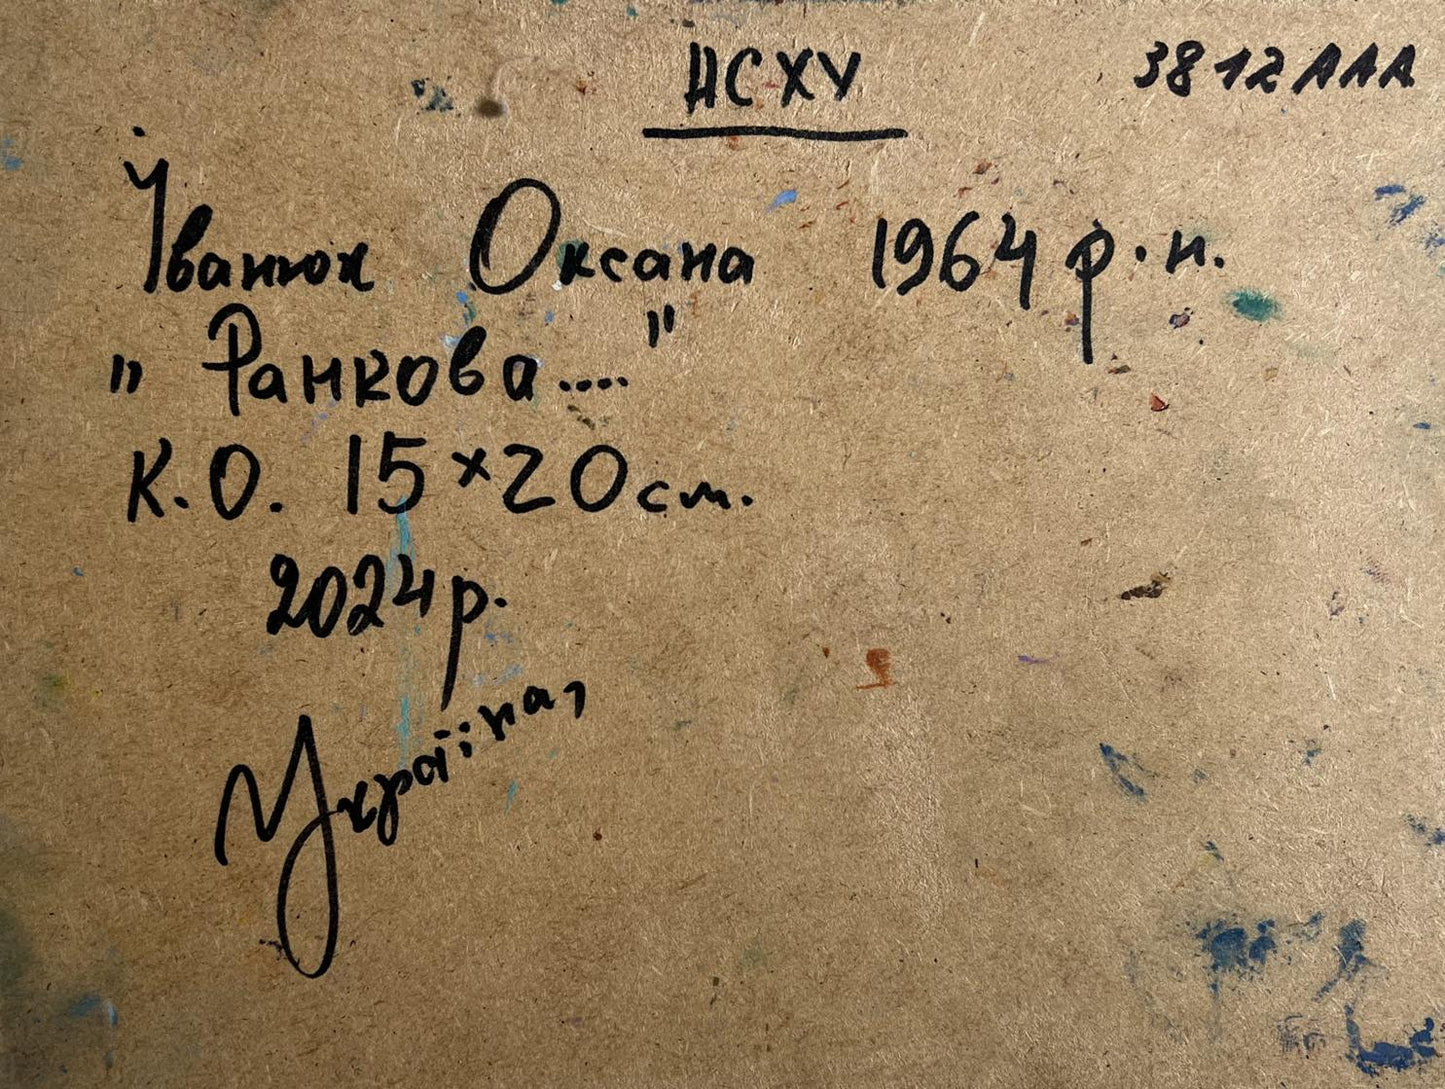 НСХУ 3812 ААА
Іванюк Оксана 1964 р.н.
" Ранкова.... "
К.О. 15×20см.
2024р.
Україна,